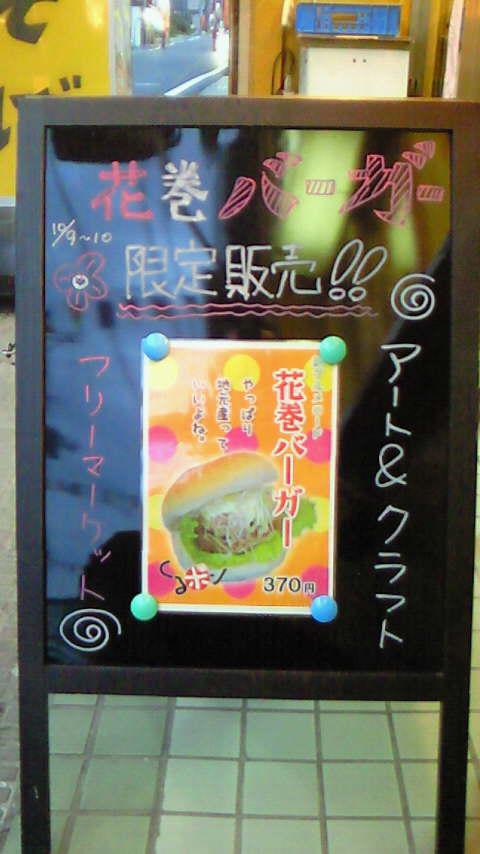 花巻バーガー
10/9〜10
限定販売!!
アート&クラフト
フリーマーケット
花巻バーガー
やっぱり
地元産って
いいよね。
くるポン
370円